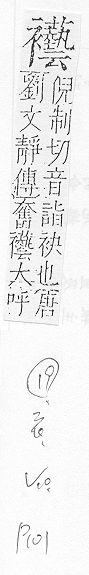 襼
倪制切音詣袂也唐
劉文靜傳奮襼大呼
19
衣
P.101